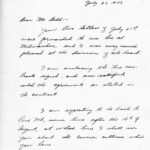 July 23, 1943
Dear Mr. Ladd:-
Your two letters of July 6th
were forwarded to me here at
Milwaukee, and I was very much
pleased at the decision of the board.
I am enclosing the two con-
tracts signed, and am satisfied
with the agreement as stated in
the contract.
I am expecting to be back to
some time after the 15th of
August, at which time I shall see
you about the various matters which
you have